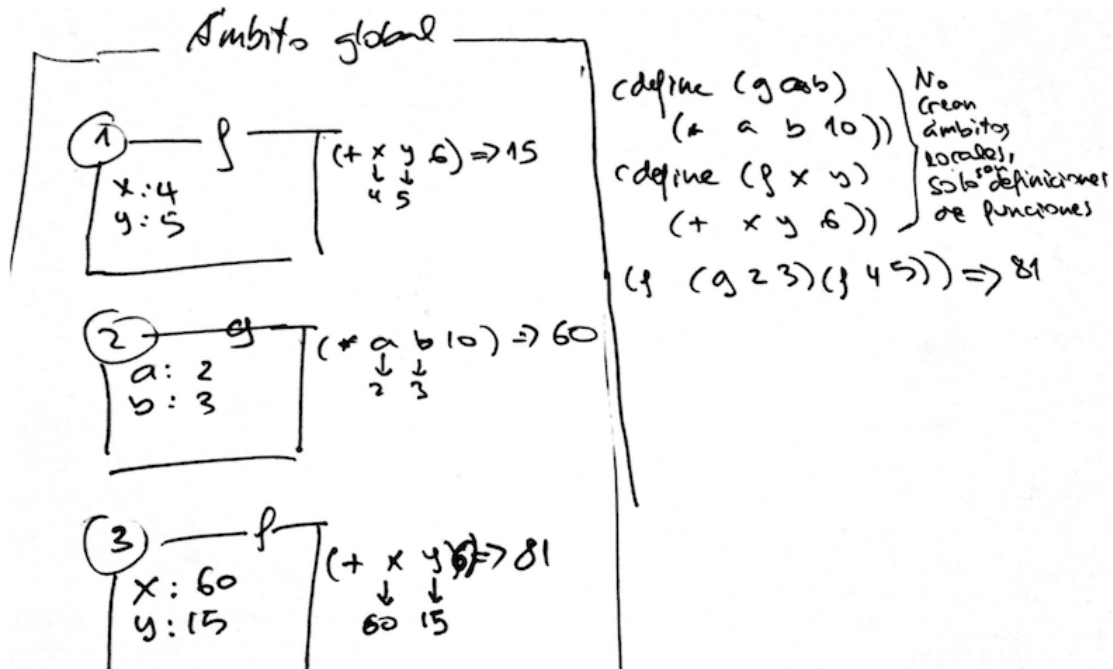 Ámbito global
1 f
x: 4
y: 5
(+ x y 6) => 15
↓ ↓
4 5
2 g
a: 2
b: 3
(* a b 10) => 60
↓ ↓
2 3
3 f
x: 60
y: 15
(+ x y 6) => 81
↓ ↓
60 15
(define (g a b)
(* a b 10))
(define (f x y)
(+ x y 6))
No
crean
ámbitos
locales,
solo son definiciones
de funciones
(f (g 2 3) (f 4 5)) => 81